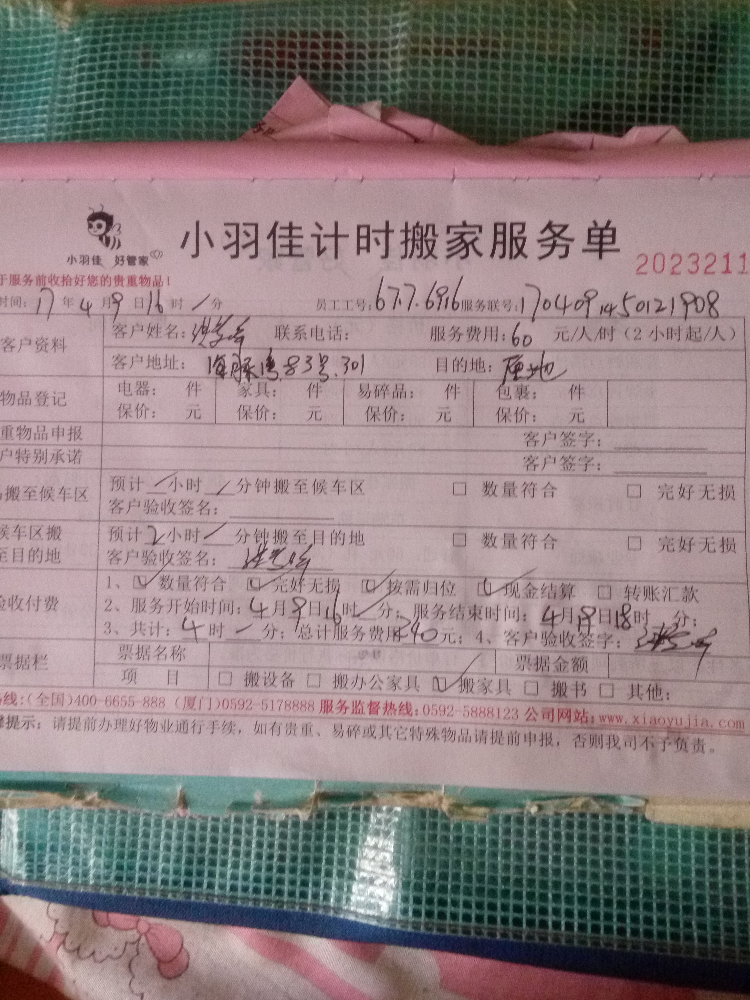 小羽佳 好管家
小羽佳计时搬家服务单
2023211
于服务前收拾好您的贵重物品!
时间: 17 年 4 月 9 日 16 时 / 分 员工工号: 677.6916 服务联号: 1704091450121908
客户资料
客户姓名: 联系电话: 服务费用: 60 元/人/时(2小时起/人)
客户地址: 83号.301 目的地: 原地
物品登记
电器: 件 家具: 件 易碎品: 件 包裹: 件
保价: 元 保价: 元 保价: 元 保价: 元
重物品申报 客户签字:
户特别承诺 客户签字:
搬至候车区
预计 / 小时 / 分钟搬至候车区 □ 数量符合 □ 完好无损
客户验收签名:
候车区搬
至目的地
预计 2 小时 / 分钟搬至目的地 □ 数量符合 □ 完好无损
客户验收签名:
验收付费
1、☑ 数量符合 ☑ 完好无损 ☑ 按需归位 ☑ 现金结算 □ 转账汇款
2、服务开始时间: 4 月 9 日 16 时 / 分; 服务结束时间: 4 月 9 日 18 时 分;
3、共计: 4 时 / 分; 总计服务费用 240 元; 4、客户验收签字:
票据栏
票据名称 票据金额
项 目 □ 搬设备 □ 搬办公家具 ☑ 搬家具 □ 搬书 □ 其他:
线:(全国)400-6655-888 (厦门)0592-5178888 服务监督热线:0592-5888123 公司网站:www.xiaoyujia.com
提示: 请提前办理好物业通行手续, 如有贵重、易碎或其它特殊物品请提前申报, 否则我司不予负责。